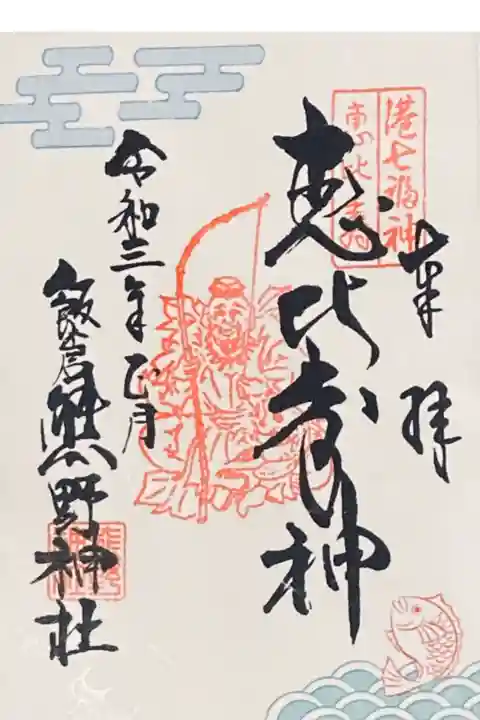 奉拝
港七福神
恵比寿
恵比寿神
令和三年正月
飯倉熊野神社